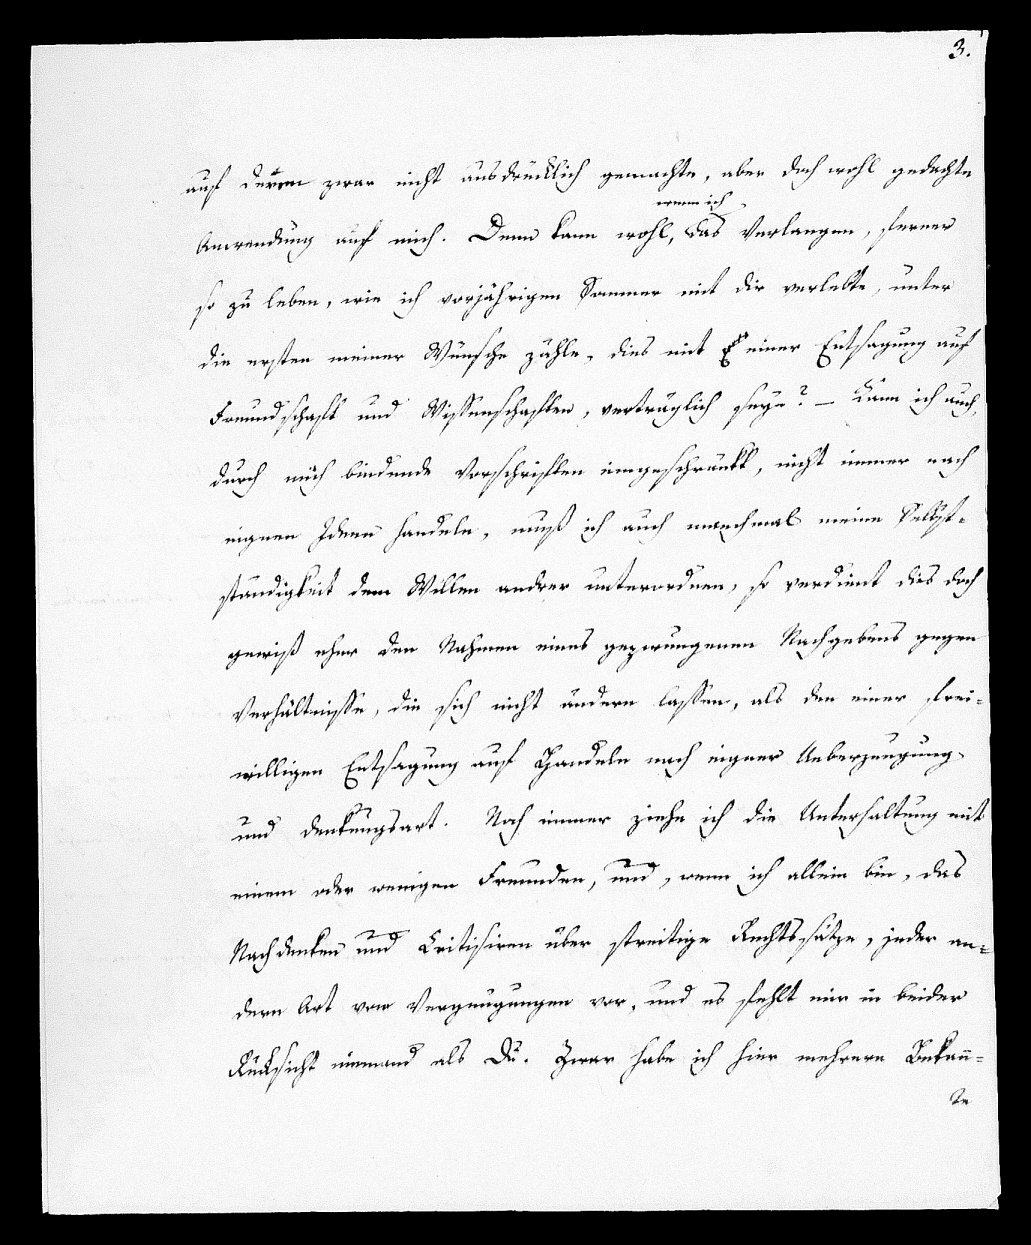 3.
auf deren zwar nicht ausdrücklich gemachte, aber doch wohl gedachte
Anwendung auf mich. Denn kann wohl, wenn ich das Verlangen, ferner
so zu leben, wie ich vorjährigen Sommer mit dir verlebte, unter
die ersten meiner Wünsche zähle, dies mit einer Entsagung auf
Freundschaft und Wissenschaften, verträglich seyn? – Kann ich auch,
durch mich bindende Vorschriften eingeschränkt, nicht immer nach
eignen Ideen handeln, muß ich auch manchmal meine Selbst-
ständigkeit dem Willen andrer unterordnen, so verdient dies doch
gewiß eher den Nahmen eines gezwungenen Nachgebens gegen
Verhältnisse, die sich nicht ändern lassen, als den einer frei-
willigen Entsagung auf Handeln nach eigner Ueberzeugung
und Denkungsart. Noch immer ziehe ich die Unterhaltung mit
einem oder wenigen Freunden, und, wenn ich allein bin, das
Nachdenken und Critisiren über streitige Rechtssätze, jeder an-
dern Art von Vergnügungen vor, und es fehlt mir in beider
Rücksicht niemand als Du. Zwar habe ich hier mehrere Bekan̄-
te